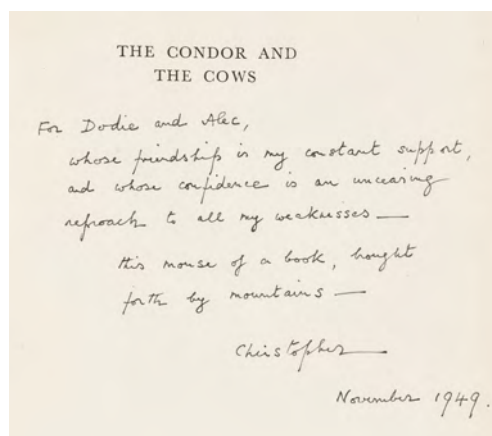 THE CONDOR AND
THE COWS
For Dodie and Alec,
whose friendship is my constant support,
and whose confidence is an unceasing
reproach to all my weaknesses —
this mouse of a book, brought
forth by mountains —
Christopher
November 1949.